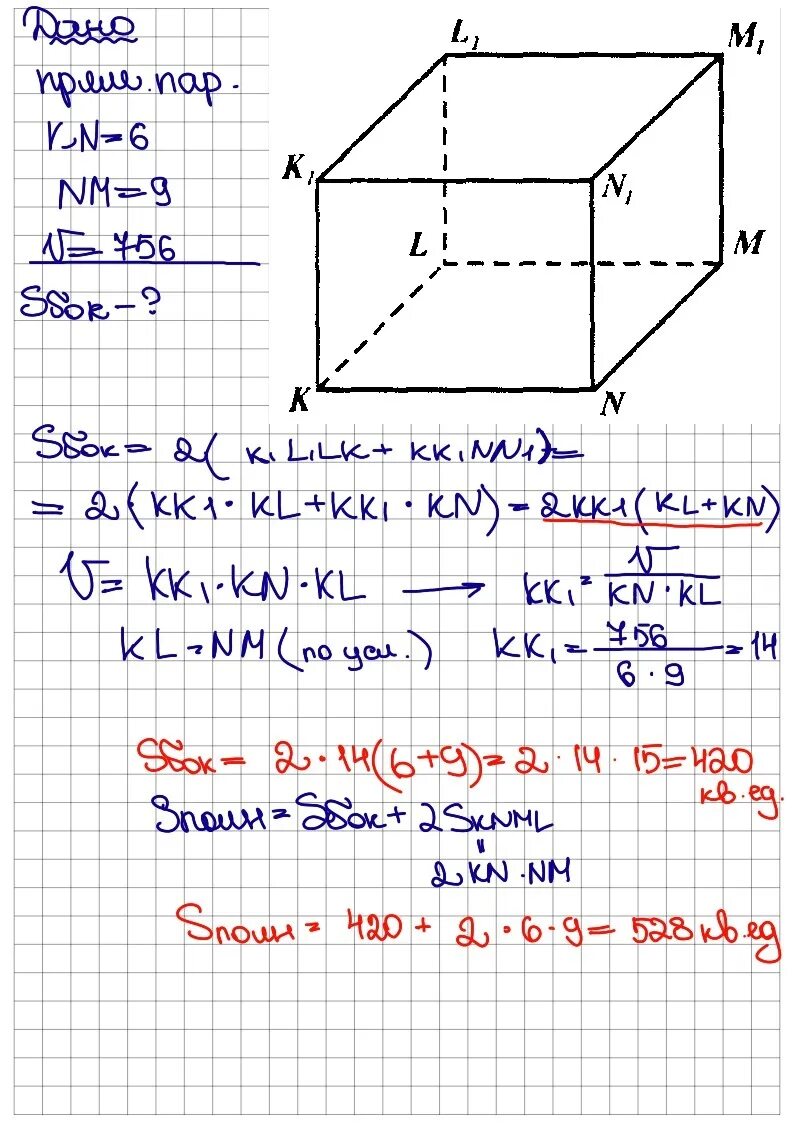 Дано
прям. пар.
KN=6
NM=9
V=756
Sбок-?
L₁
M₁
K₁
N₁
L
M
K
N
Sбок= 2( K₁L₁LK+ KK₁NN₁)=
= 2(KK1·KL+KK₁·KN)=2KK1(KL+KN)
V= KK₁·KN·KL → KK₁= V/KN·KL
KL=NM(по усл.) KK₁= 756/6·9 =14
Sбок= 2·14(6+9)=2·14·15=420
кв.ед.
Sполн=Sбок+2SKNML
"
2KN·NM
Sполн= 420+ 2·6·9= 528кв.ед